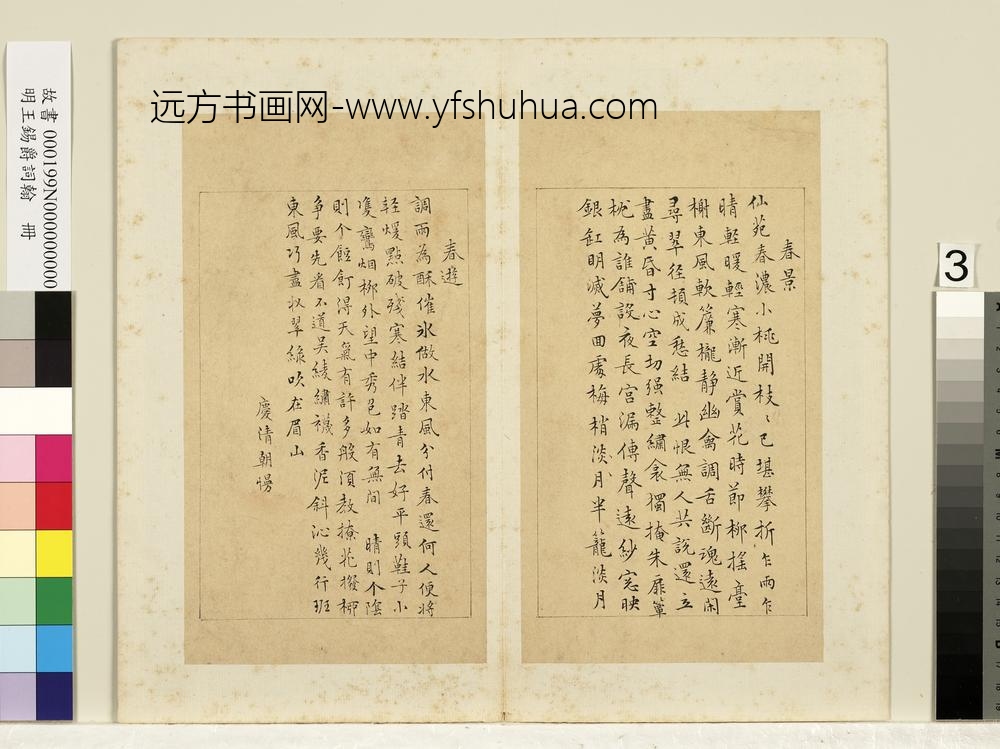 远方书画网-www.yfshuhua.com
故書 000199N000000000
明王錫爵詞翰 冊
3
春景
仙苑春濃小桃開枝〻已堪攀折乍雨乍
晴輕暖輕寒漸近賞花時節柳搖臺
榭東風軟簾櫳静幽禽調舌斷魂遠閑
尋翠径頓成愁結 此恨無人共說還立
盡黃昏寸心空切强整繡衾獨掩朱扉簟
枕為誰鋪設夜長宫漏傳聲遠紗窓映
銀缸明滅夢回處梅梢淡月半籠淡月
春遊
調雨為酥催氷做水東風分付春還何人便將
輕煖點破殘寒結伴踏青去好平頭鞋子小
雙鸞烟柳外望中秀色如有無間 晴則个陰
則个餖飣得天氣有許多般須教撩花撥柳
争要先看不道吴綾繡襪香泥斜沁幾行班
東風巧盡收翠綠吹在眉山
慶清朝慢